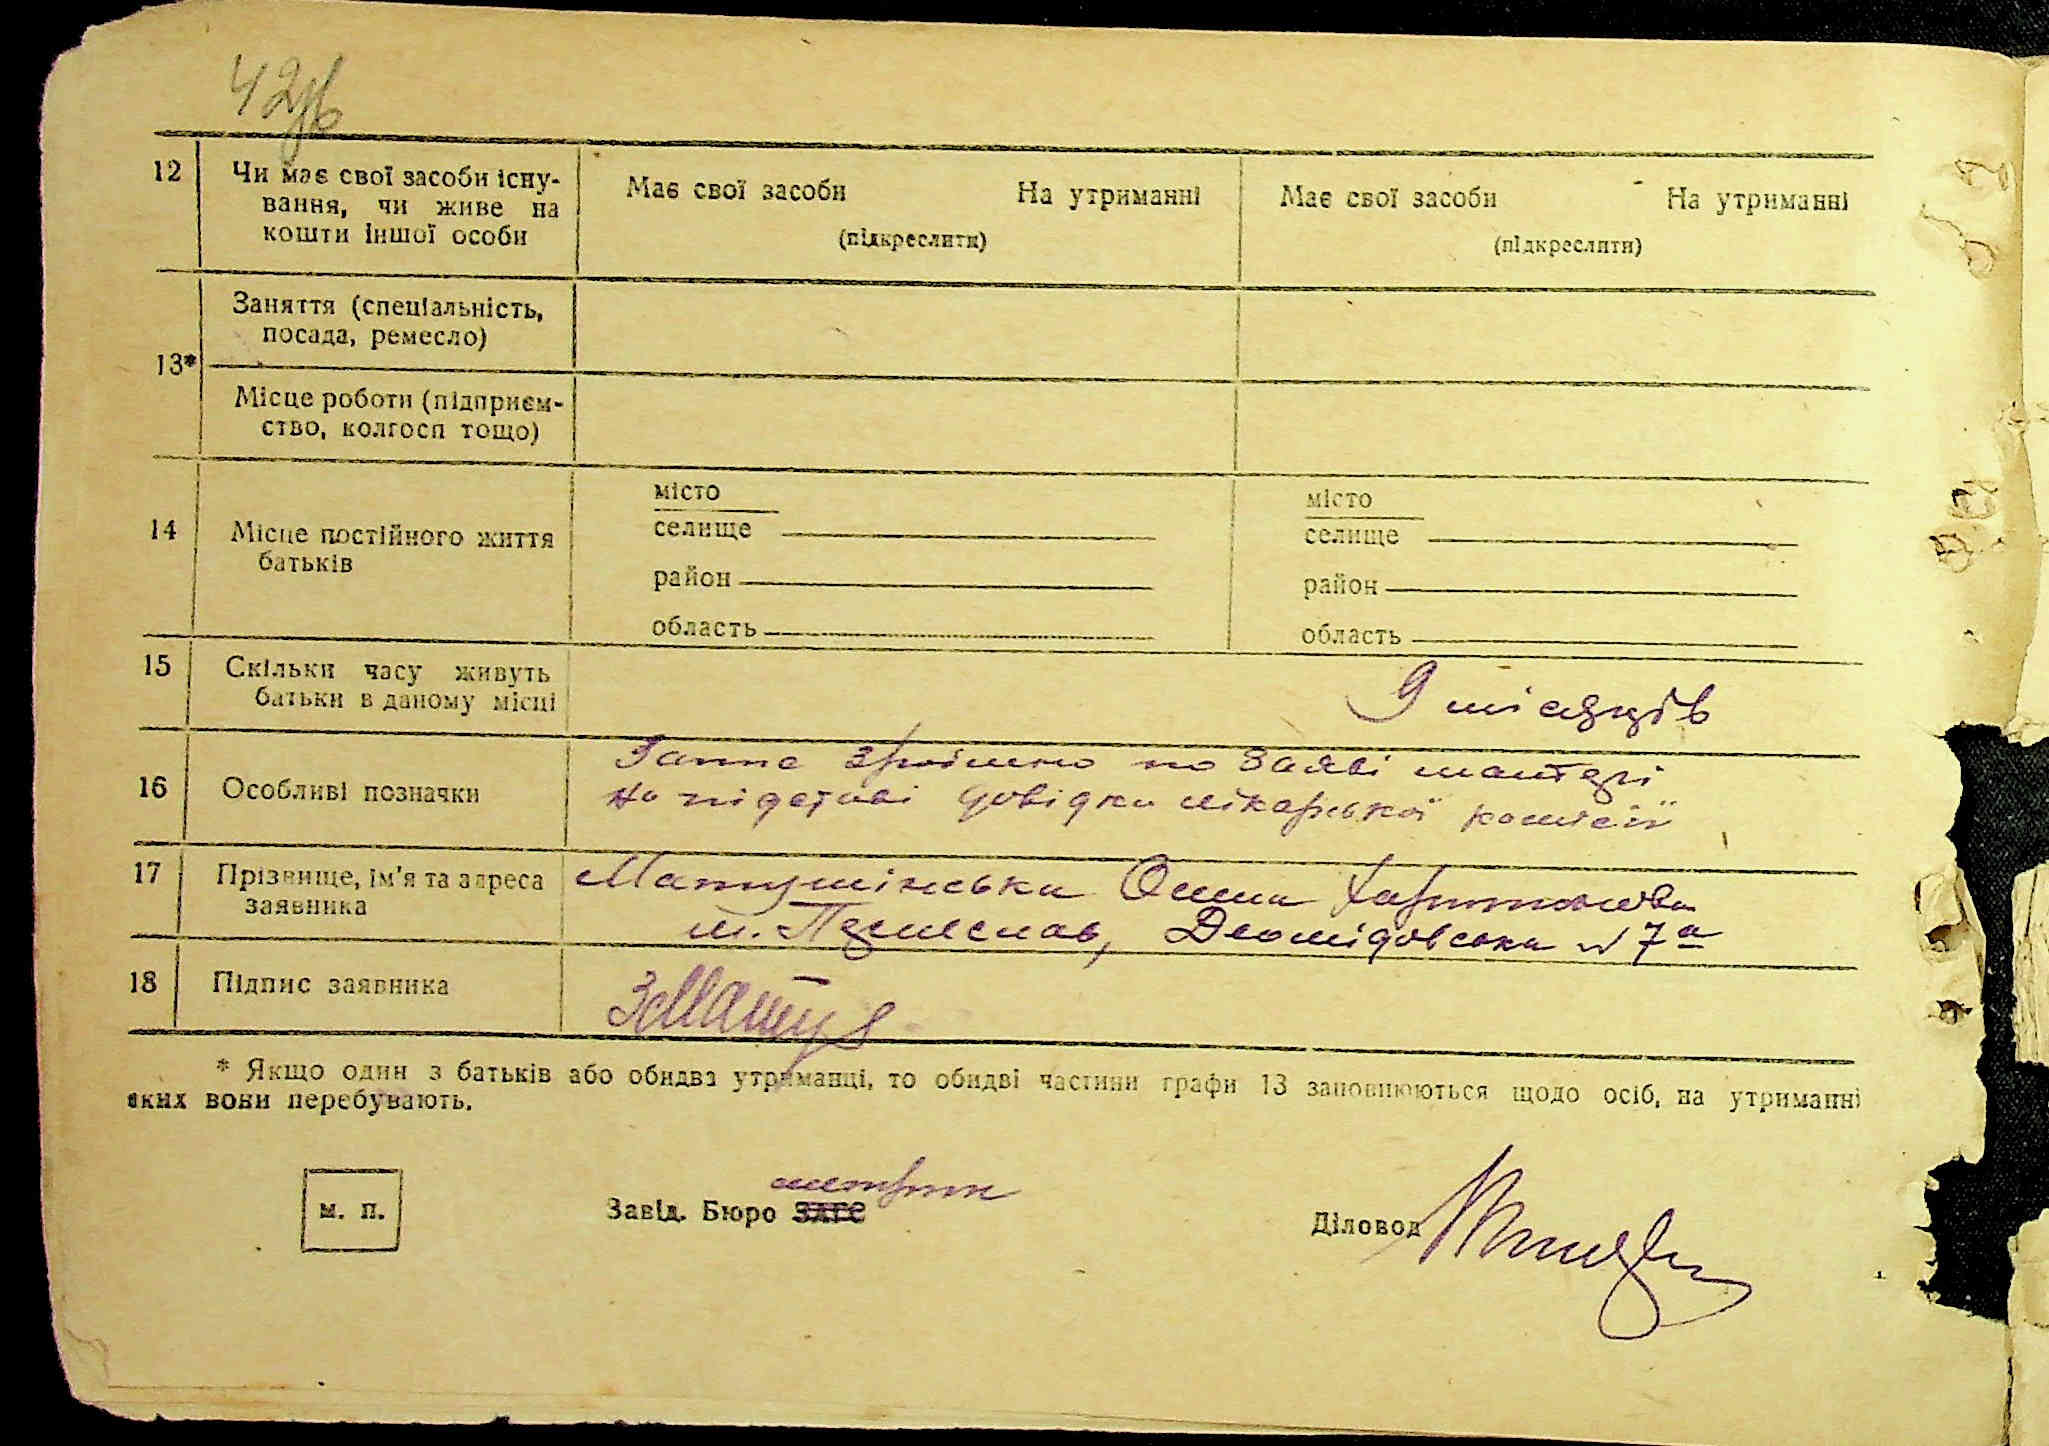 42зв
12 Чи має свої засоби існу-
вання, чи живе на
кошти іншої особи
Має свої засоби На утриманні
(підкреслити)
Має свої засоби На утриманні
(підкреслити)
13*
Заняття (спеціальність,
посада, ремесло)
Місце роботи (підприєм-
ство, колгосп тощо)
14 Місце постійного життя
батьків
місто
селище
район
область
місто
селище
район
область
15 Скільки часу живуть
батьки в даному місці
9 місяців
16 Особливі позначки
Запис зроблено по заяві матері
на підставі довідки лікарської комісії
17 Прізвище, ім'я та адреса
заявника
Матушінська Олена Харитоновна
м. Переяслав, Деомідовська № 7а
18 Підпис заявника
* Якщо один з батьків або обидва утриманці, то обидві частини графи 13 заповнюються щодо осіб, на утриманні
яких вони перебувають.
м. п.
метрик
Завід. Бюро ЗАГС
Діловод